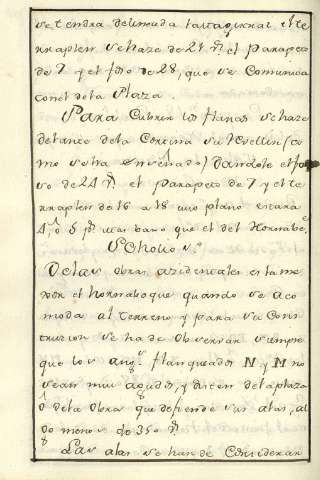 se tendra delineada la
rraplen se haze de 21 p.s el parapeto
de 7 y el foso de 28, que se comunica
con el de la Plaza.
Para Cubrir los flancos se haze
delante de la Cortina su Revellin (co
mo se ha enseñado) Dandole el fo
so de 24 p.s el parapeto de 7 y el te
rraplen de 16 a 18 cuio plano estara
4, ó 5 p.s mas bavo que el del Hornabe.
Scholio
De las obras accidentales es la me
xor el hornaboque quando se aco
moda al terreno y para su Cons
truccion se ha de observar siempre
que los ang.s flanqueados N y M no
sean mui agudos, y disten de la plaza
ò de la Obra que defiende sus alas, al
do menos de 350 p.s
Las alas se han de Considerar